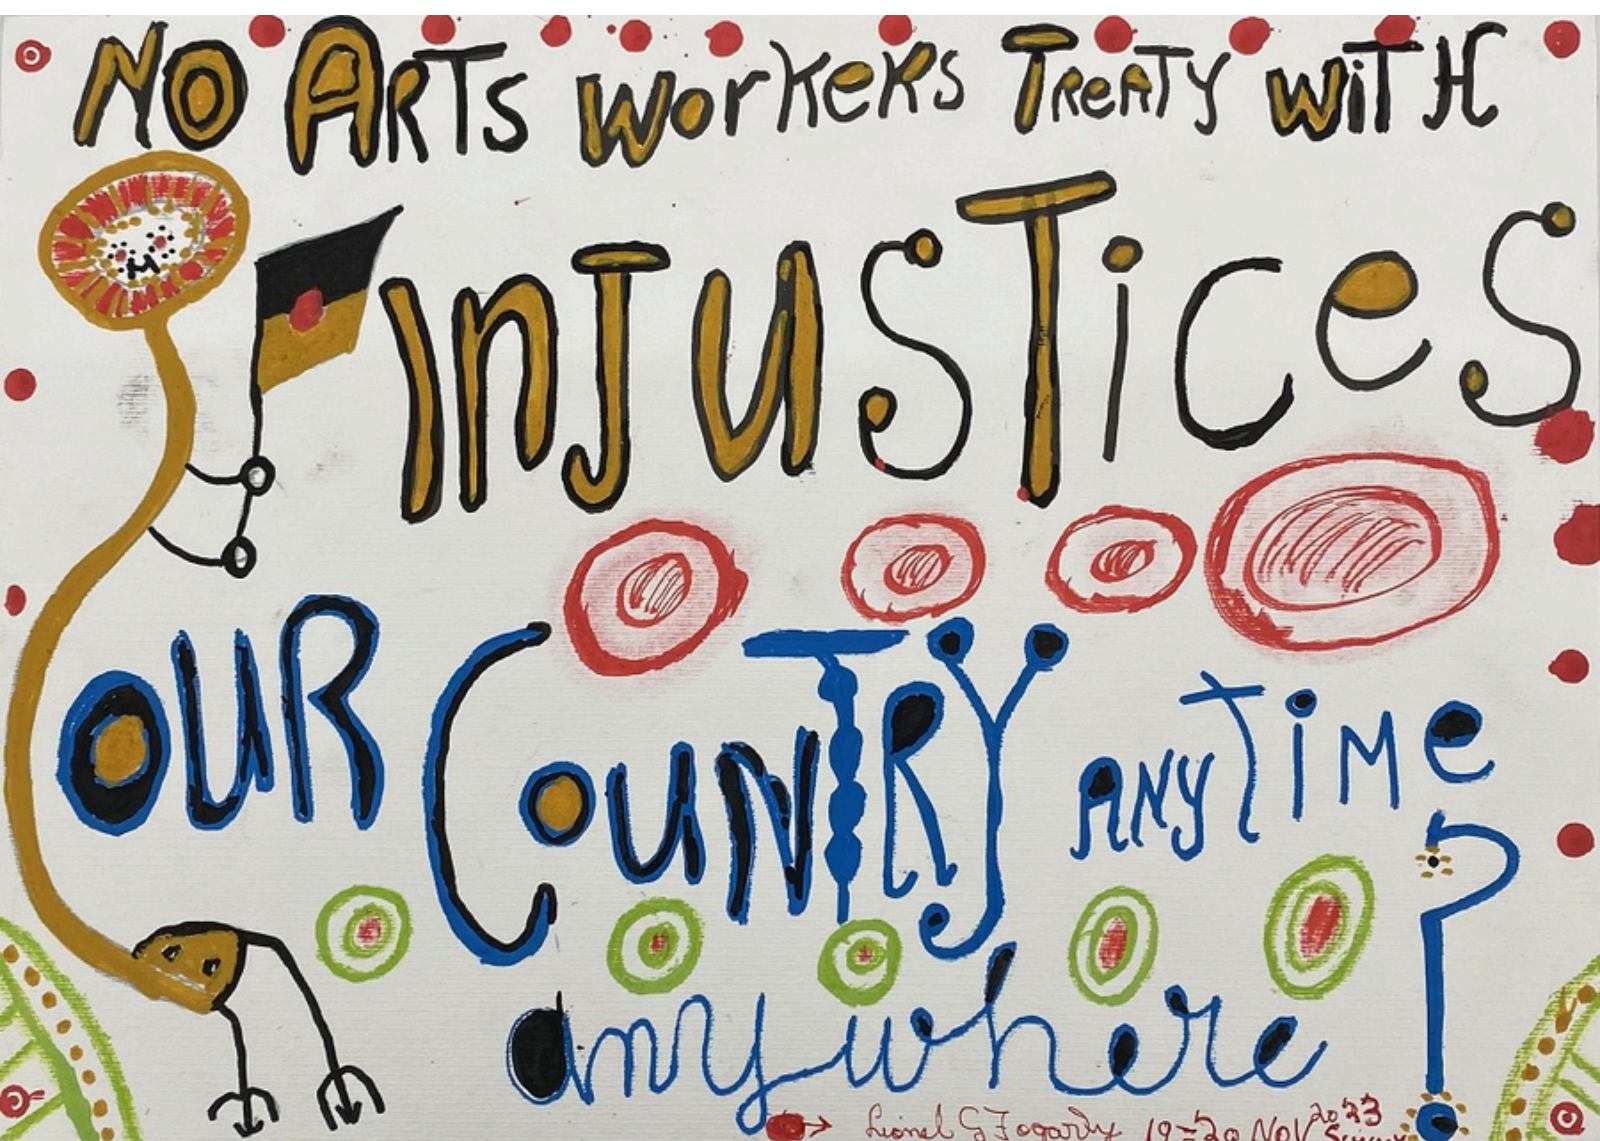 NO ARTS workers TreATY WiTH
InJUSTiceS
OUR CounTRY ANYTiMe ?
anywhere
Lionel G Fogarty 19-20 NOV 2023